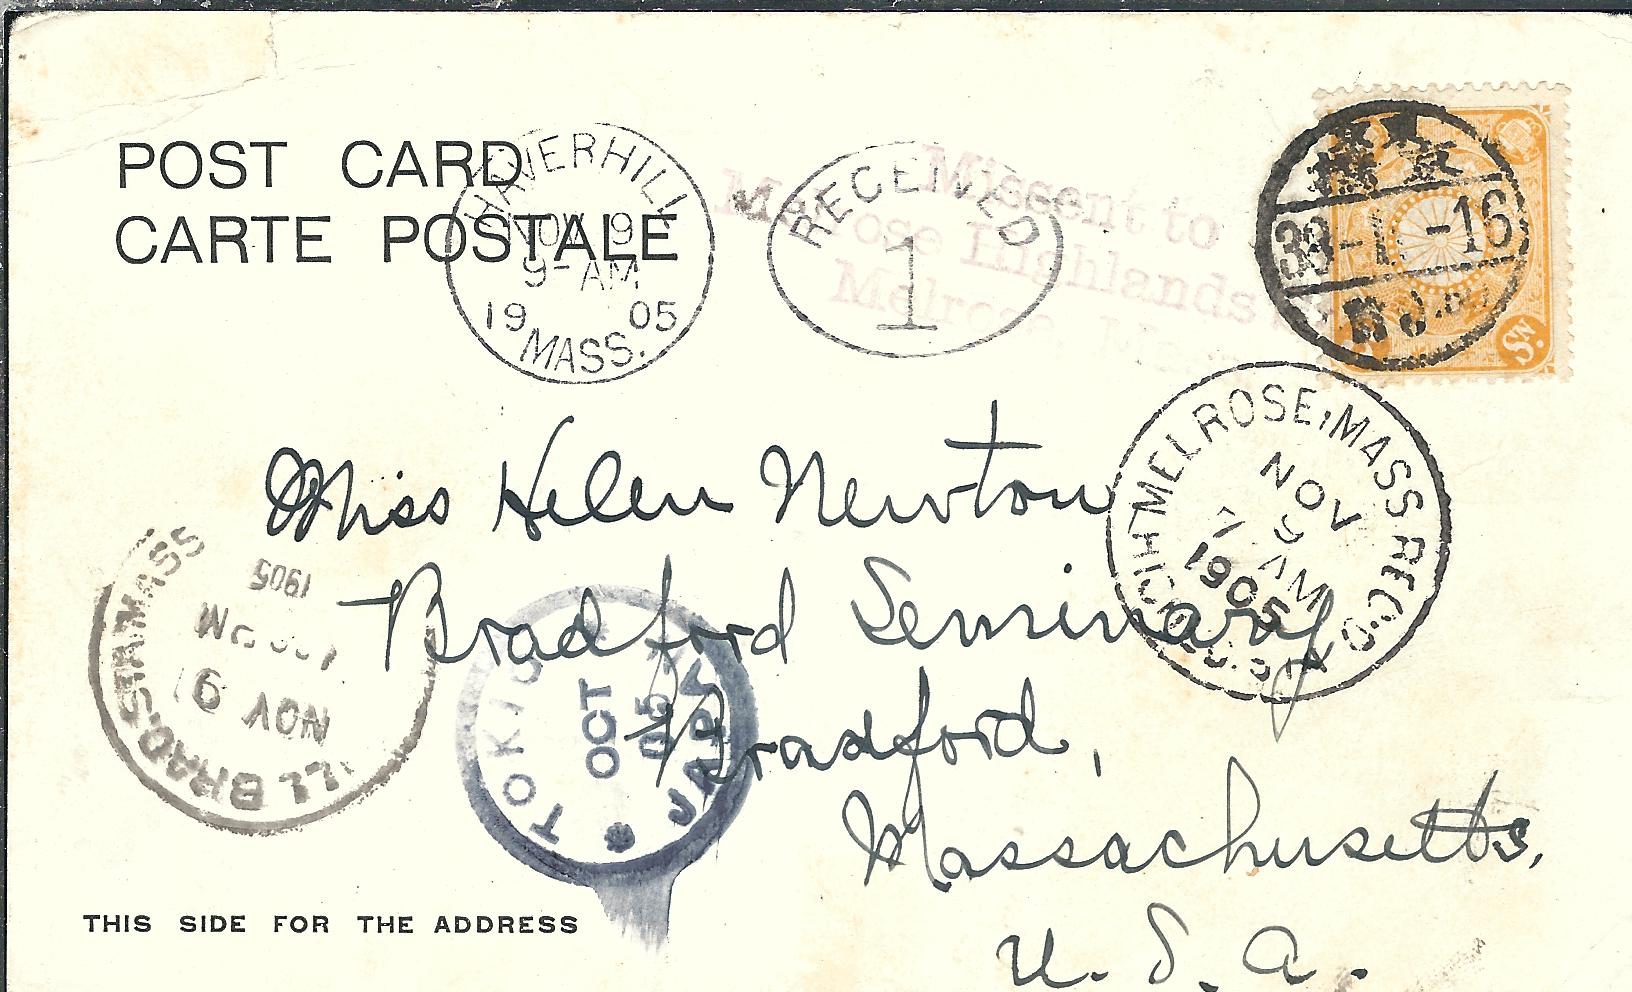 POST CARD
CARTE POSTALE
HAVERHILL
NOV 9
9-AM
1905
MASS.
RECEIVED
1
Missent to
Melrose Highlands
Melrose
東京
38-1 -16
Sn.
MELROSE, MASS REC'D.
NOV
9
7 AM
1905
Miss Helen Newton
Bradford Seminary
Bradford,
Massachusetts,
U. S. A.
BRAD. STA. MASS
NOV 9
PM
1905
TOKIO
OCT
05
JAPAN
THIS SIDE FOR THE ADDRESS